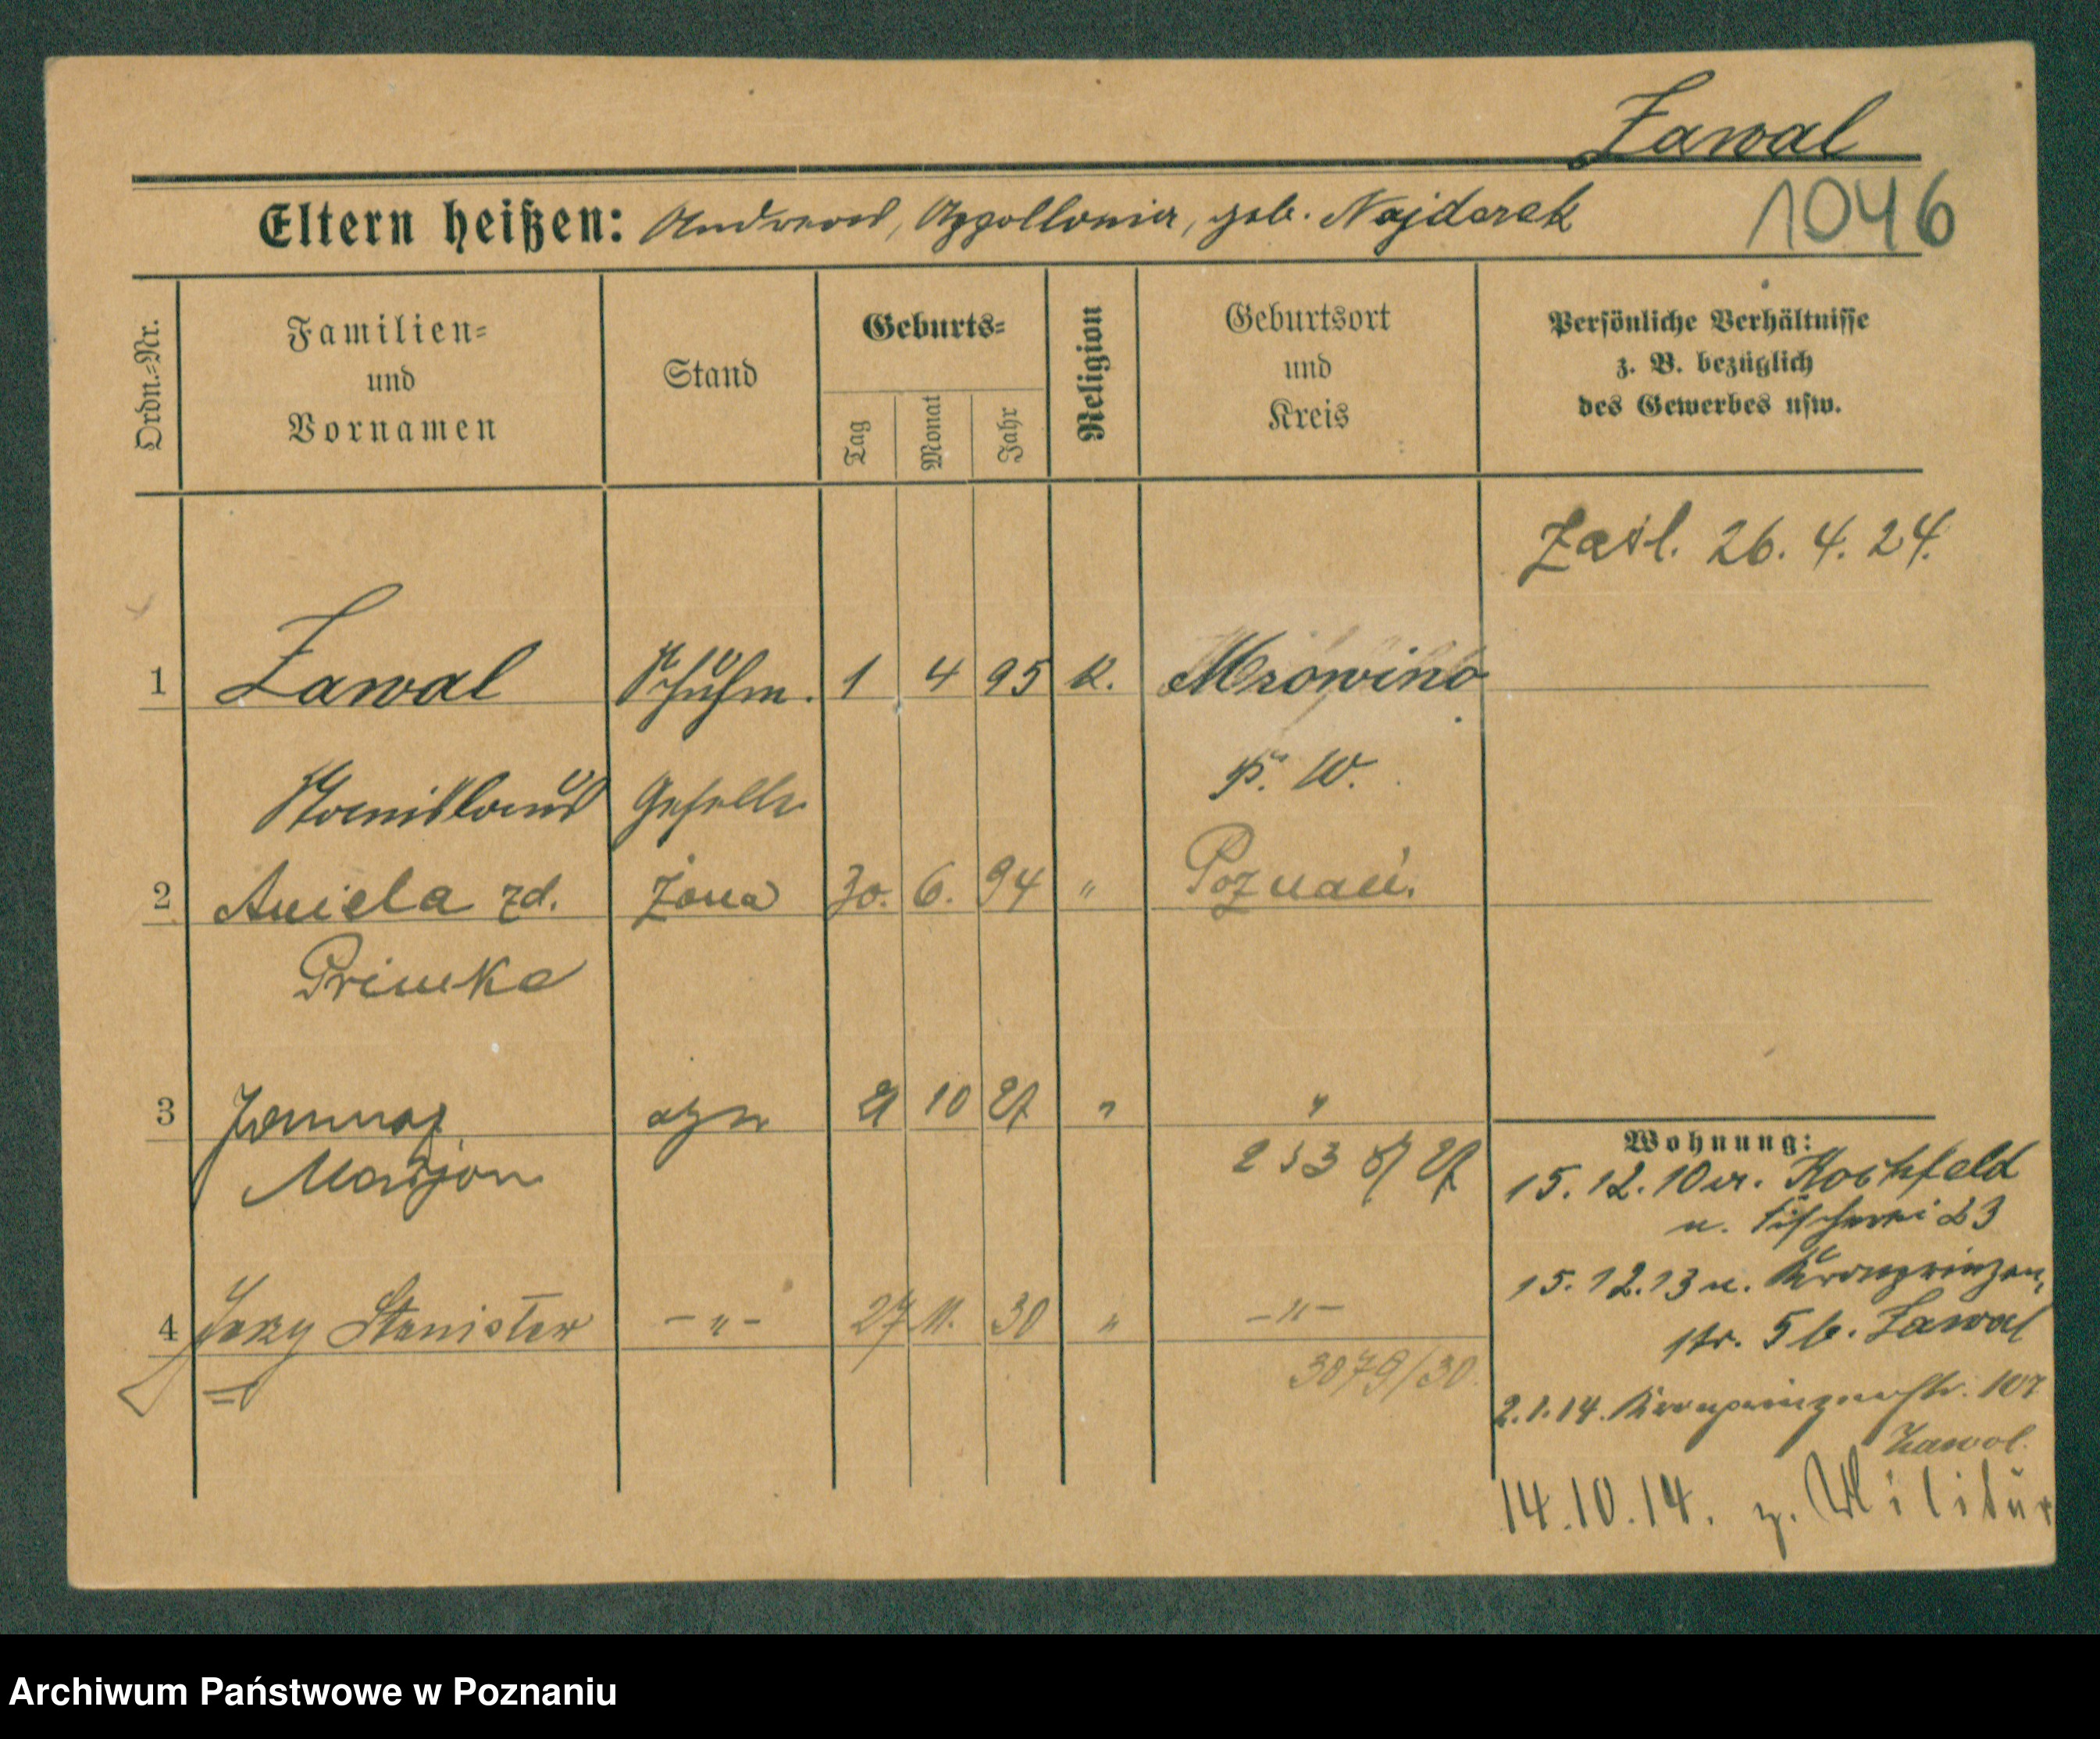 Zawal
Eltern heißen: Andreas, Appollonia, geb. Najderek
1046
Ordn.-Nr.
Familien-
und
Vornamen
Stand
Geburts-
Tag
Monat
Jahr
Religion
Geburtsort
und
Kreis
Persönliche Verhältnisse
z. B. bezüglich
des Gewerbes usw.
Zasl. 26. 4. 24.
1 Zawal Schuhm. 1 4 95 K. Mrowino
Stanislaus Geselle P. W.
2 Aniela zd. żona 30. 6. 94 " Poznań.
Primke
3 10 27 " "
Marjan 27
4 Jerzy Stanisław - " - 27 11. 30 " - " -
3079/30.
Wohnung:
15. 12. 10
u. Fischerei 23
15. 12. 13 u. Kronprinzen-
str. 5 b. Zawal
2. 1. 14. Kronprinzenstr. 107
Zawal.
14. 10. 14. z. Militär
Archiwum Państwowe w Poznaniu